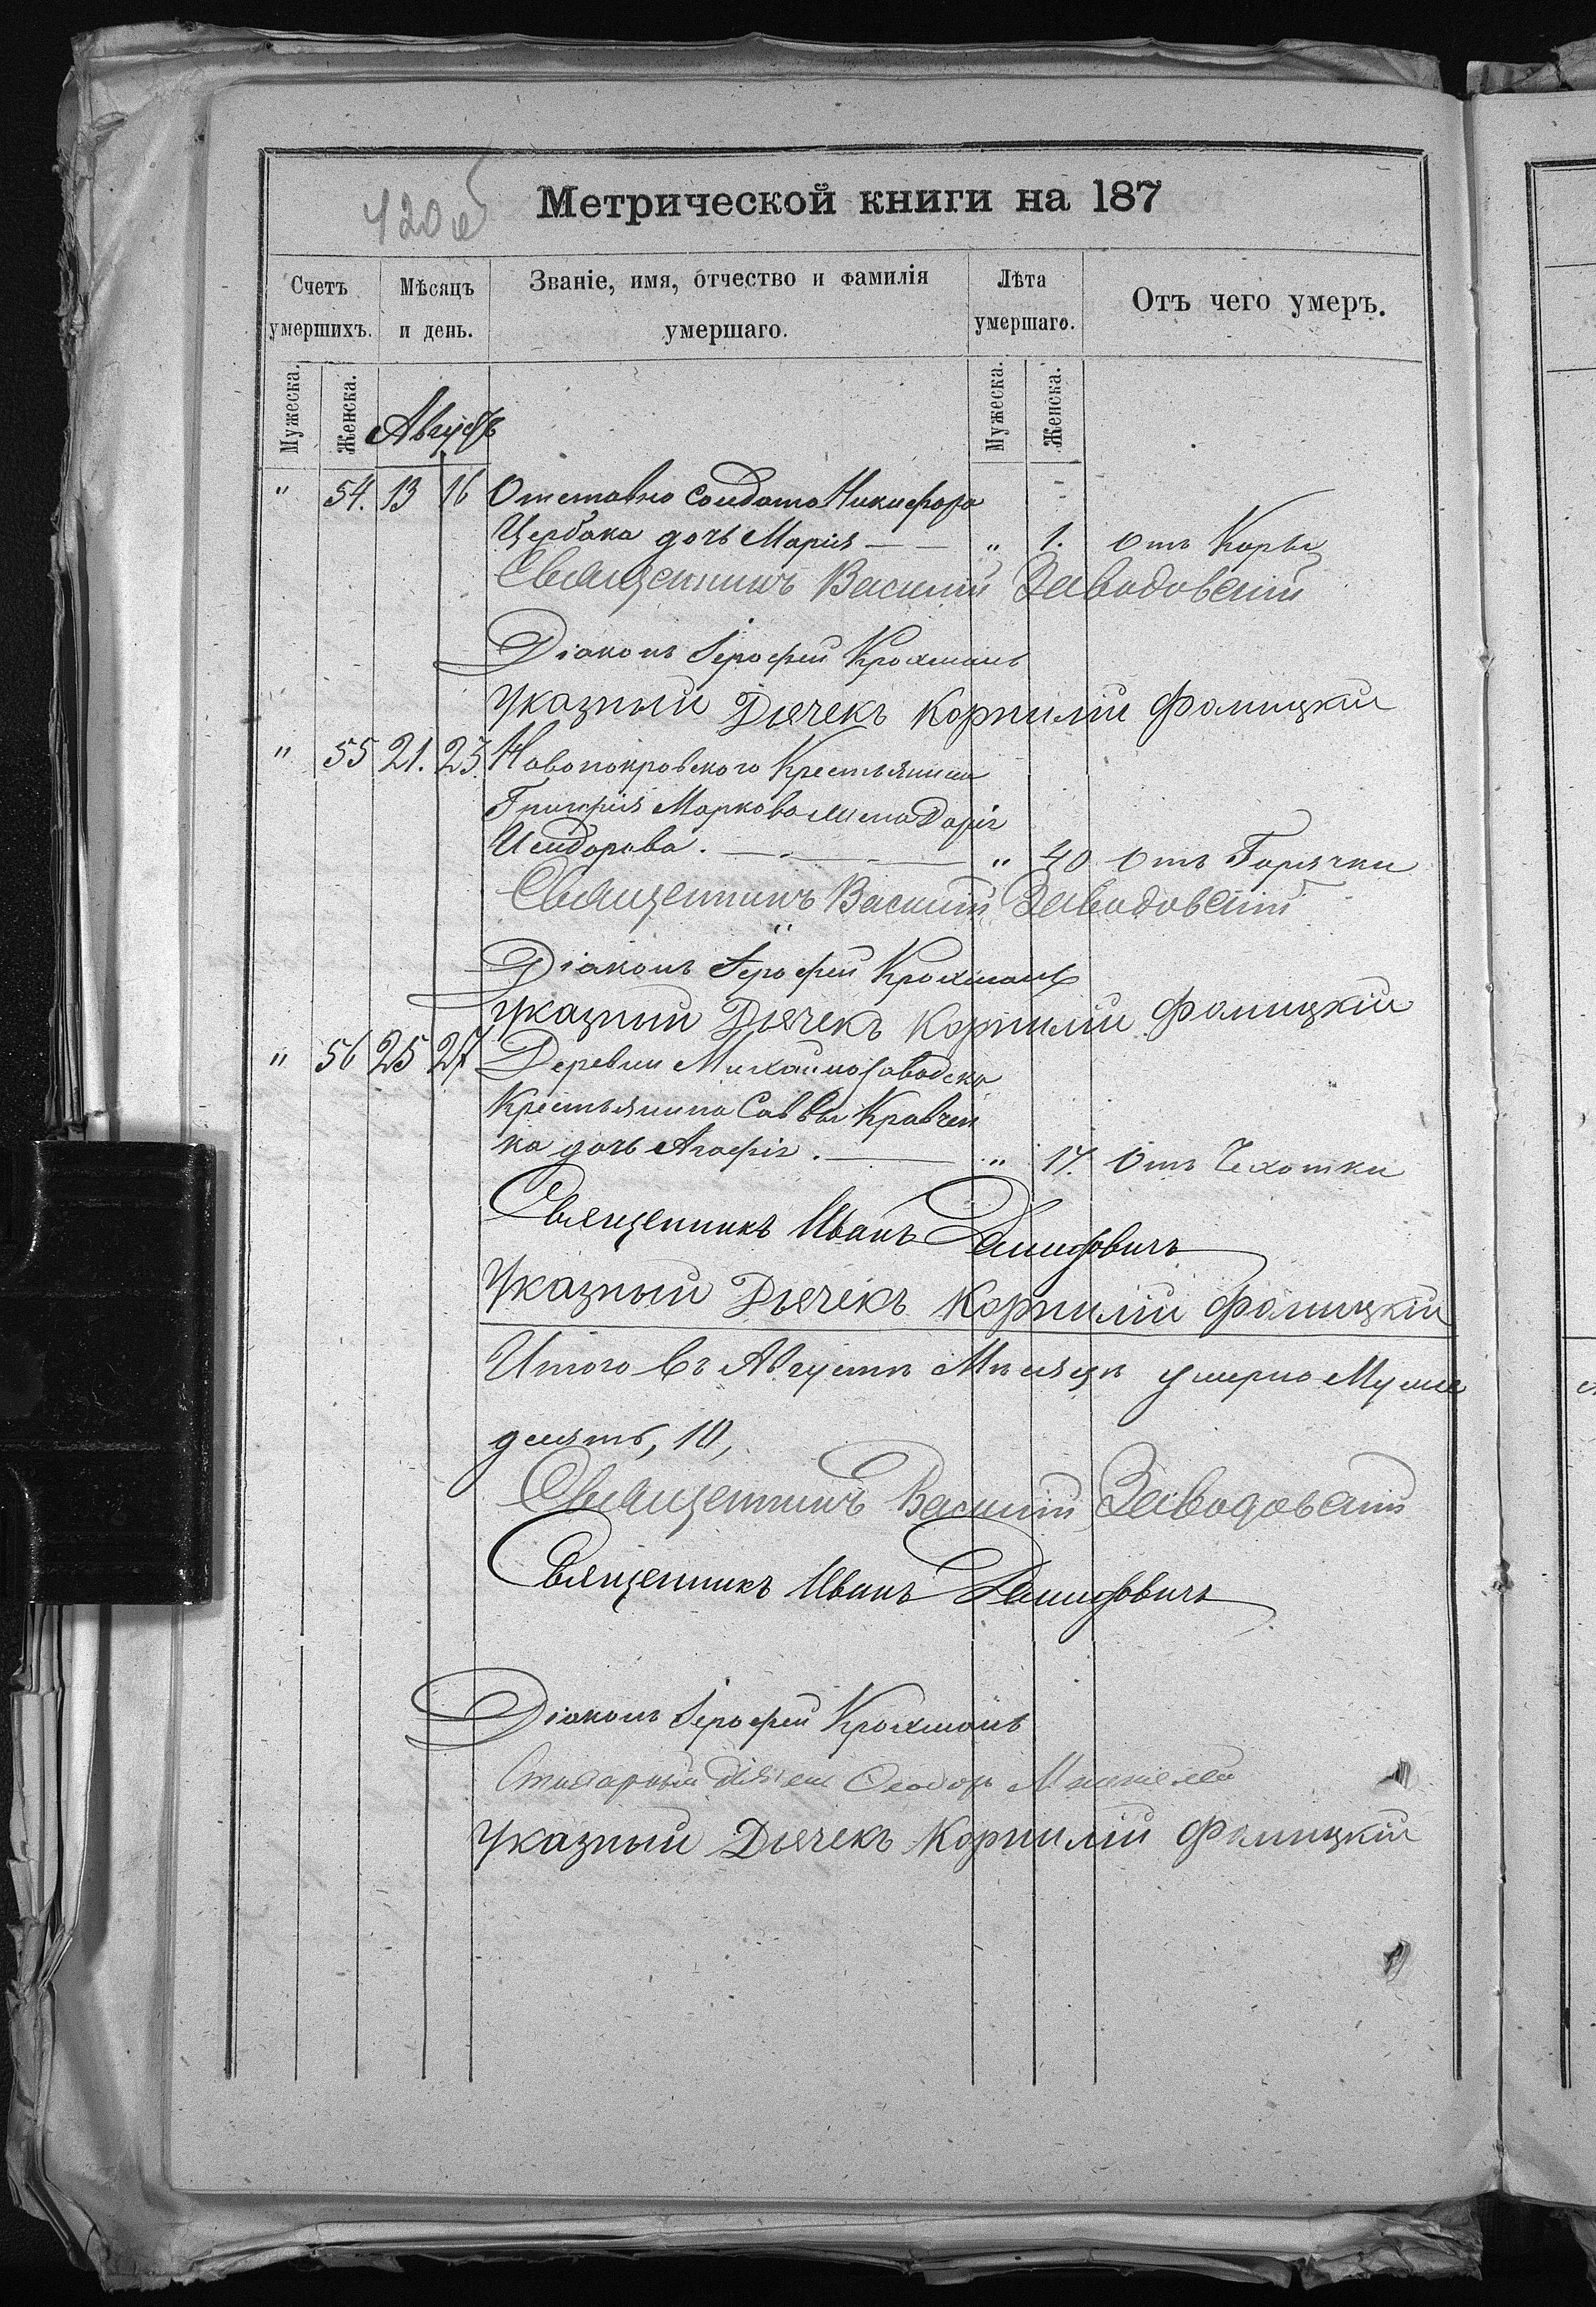 420 об
Метрической книги на 187
Счетъ умершихъ.
Мѣсяцъ и день.
Званіе, имя, отчество и фамилія умершаго.
Лѣта умершаго.
Отъ чего умеръ.
Мужеска. Женска. Августъ Мужеска. Женска.
" 54. 13 16 Отставно Солдата Никифора
Щербака дочь Марія — — " 1. отъ Корьи
Священникъ Василій Заводовскій
Діаконъ Іерофей Крохмаль
Указный Дьячекъ Корнилій Фомицкій
" 55 21. 23. Новопокровского Крестьянина
Григорія Маркова жена Дарія
Исидорова. — — — " 40 отъ Горячки
Священникъ Василій Заводовскій
Діаконъ Іерофей Крохмаль
Указный Дьячекъ Корнилій Фомицкій
" 56 25 27 Деревни Михайлозаводско
Крестьянина Саввы Кравчен
ка дочь Агафія. — " 17. Отъ Чахотки
Священникъ Иванъ
Указный Дьячекъ Корнилій Фомицкій
Итого въ Августѣ Мѣсяцѣ умерло Муже
десять, 10,
Священникъ Василій Заводовскій
Священникъ Иванъ
Діаконъ Іерофей Крохмаль
Указный Дьячекъ Корнилій Фомицкій